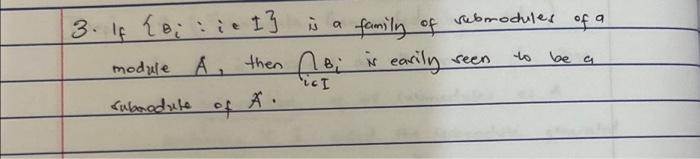 3. If {Bi : i ∈ I} is a family of submodules of a
module A, then ⋂ Bi is easily seen to be a
i∈I
submodule of A.